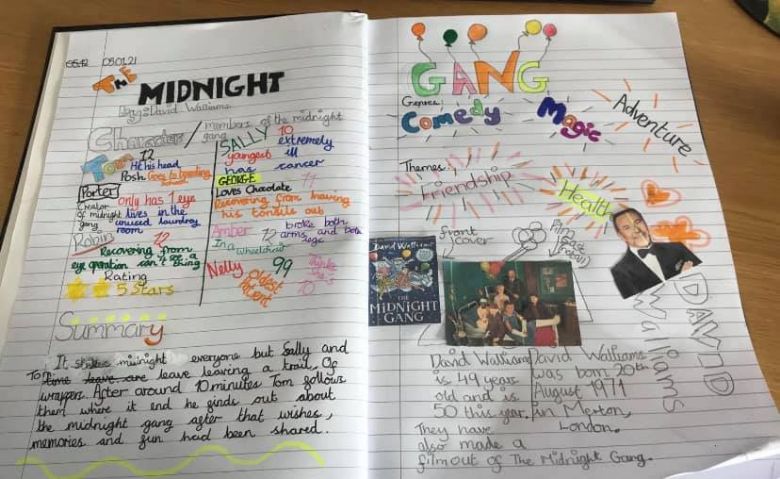 05.01.21
THE MIDNIGHT
By: David Walliams
Character/ members of the midnight gang
Tom 12
Hit his head
Posh Goes to boarding school
Porter
Creator of midnight gang
only has 1 eye
lives in the unused laundrey room
Robin 12
Recovering from eye operation can't see a thing
Rating
5 Stars
SALLY 10
youngest
extremely ill
has cancer
GEORGE 11
Loves Chocolate
Recovering from having his tonsils out
Amber 12
In a wheelchair
broke both arms and both legs
Nelly 99
oldest Patient
Thinks she's 10
Summary
It strikes midnight everyone but Sally and
Tom leave leaving a trail of
wrappers After around 10 minutes Tom follows
them where it end he finds out about
the midnight gang after that wishes,
memories and fun had been shared.
GANG
Genres:
Comedy
Magic
Adventure
Themes:
Friendship
Health
front cover
David Walliams
THE MIDNIGHT GANG
DAVID Walliams
David Walliams
is 49 years
old and is
50 this year.
They have
also made a
film out of The Midnight Gang.
David Walliams
was born 20th
August 1971
in Merton,
London.